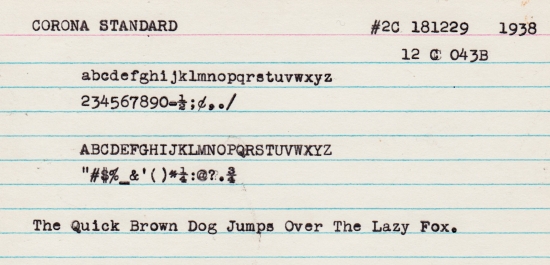 CORONA STANDARD #2C 181229 1938
12 C 043B
abcdefghijklmnopqrstuvwxyz
234567890-½;¢,./
ABCDEFGHIJKLMNOPQRSTUVWXYZ
"#$%_&'()*¼:@?.¾
The Quick Brown Dog Jumps Over The Lazy Fox.